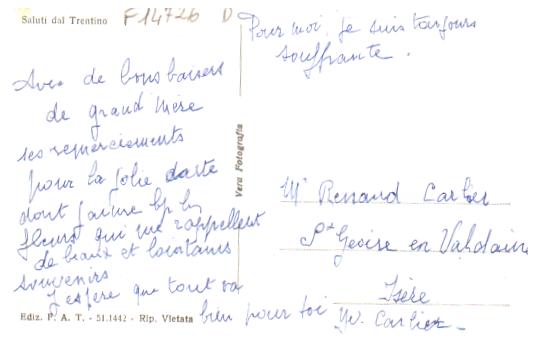 Saluti dal Trentino
F14726 D
Pour moi, je suis toujours
souffrante.
Avec de bons baisers
de grand'mère
ses remerciements
pour la jolie carte
dont j'aime bp les
fleurs qui me rappellent
de beaux et lointains
souvenirs
J'espère que tout va
bien pour toi
Yv. Carlier
Vera Fotografia
Mr Renaud Carlier
St Geoire en Valdaine
Isère
Ediz. P. A. T. - 51.1442 - Rip. Vietata